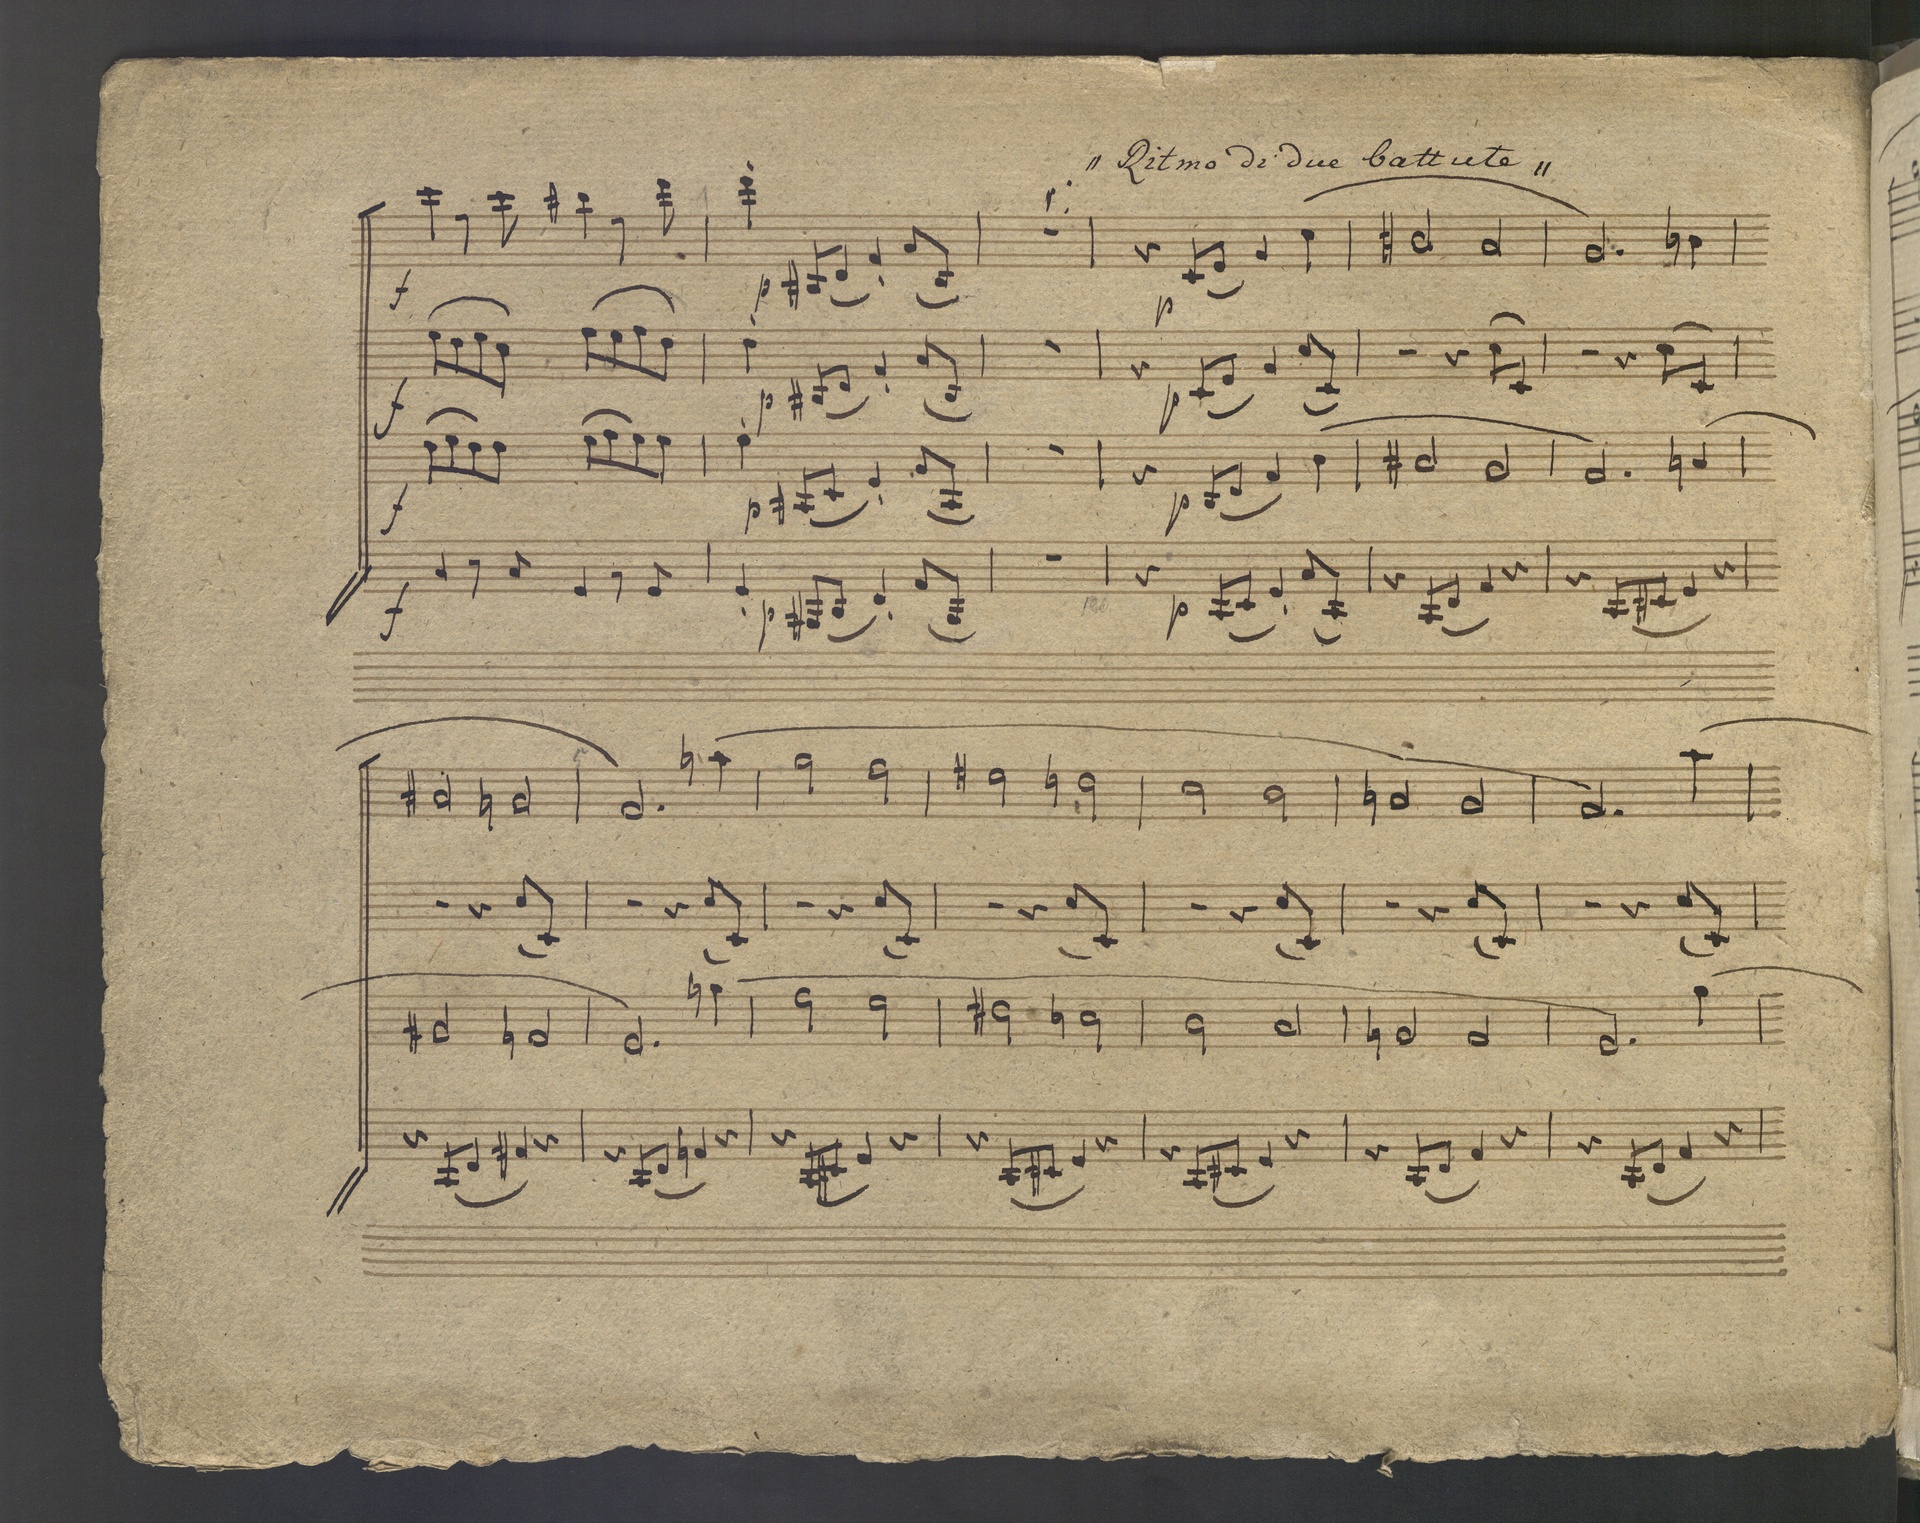 „ Ritmo di due battute „
f
p
p
f
p
p
f
p
p
f
p
p